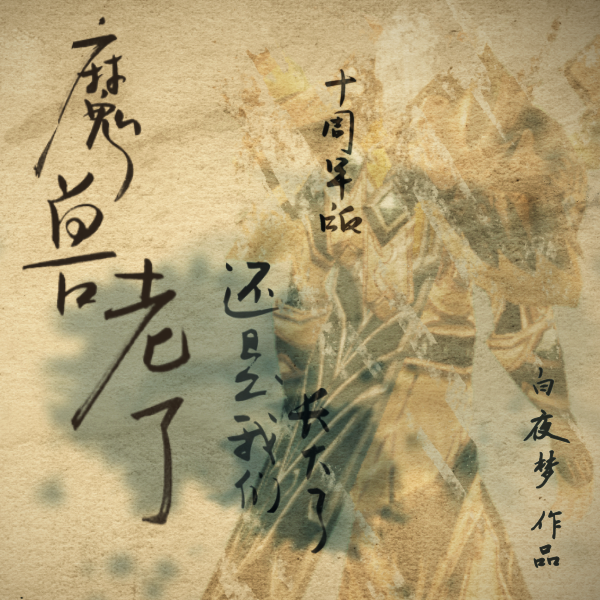 魔兽老了
还是我们
长大了
十周年版
白夜梦 作品